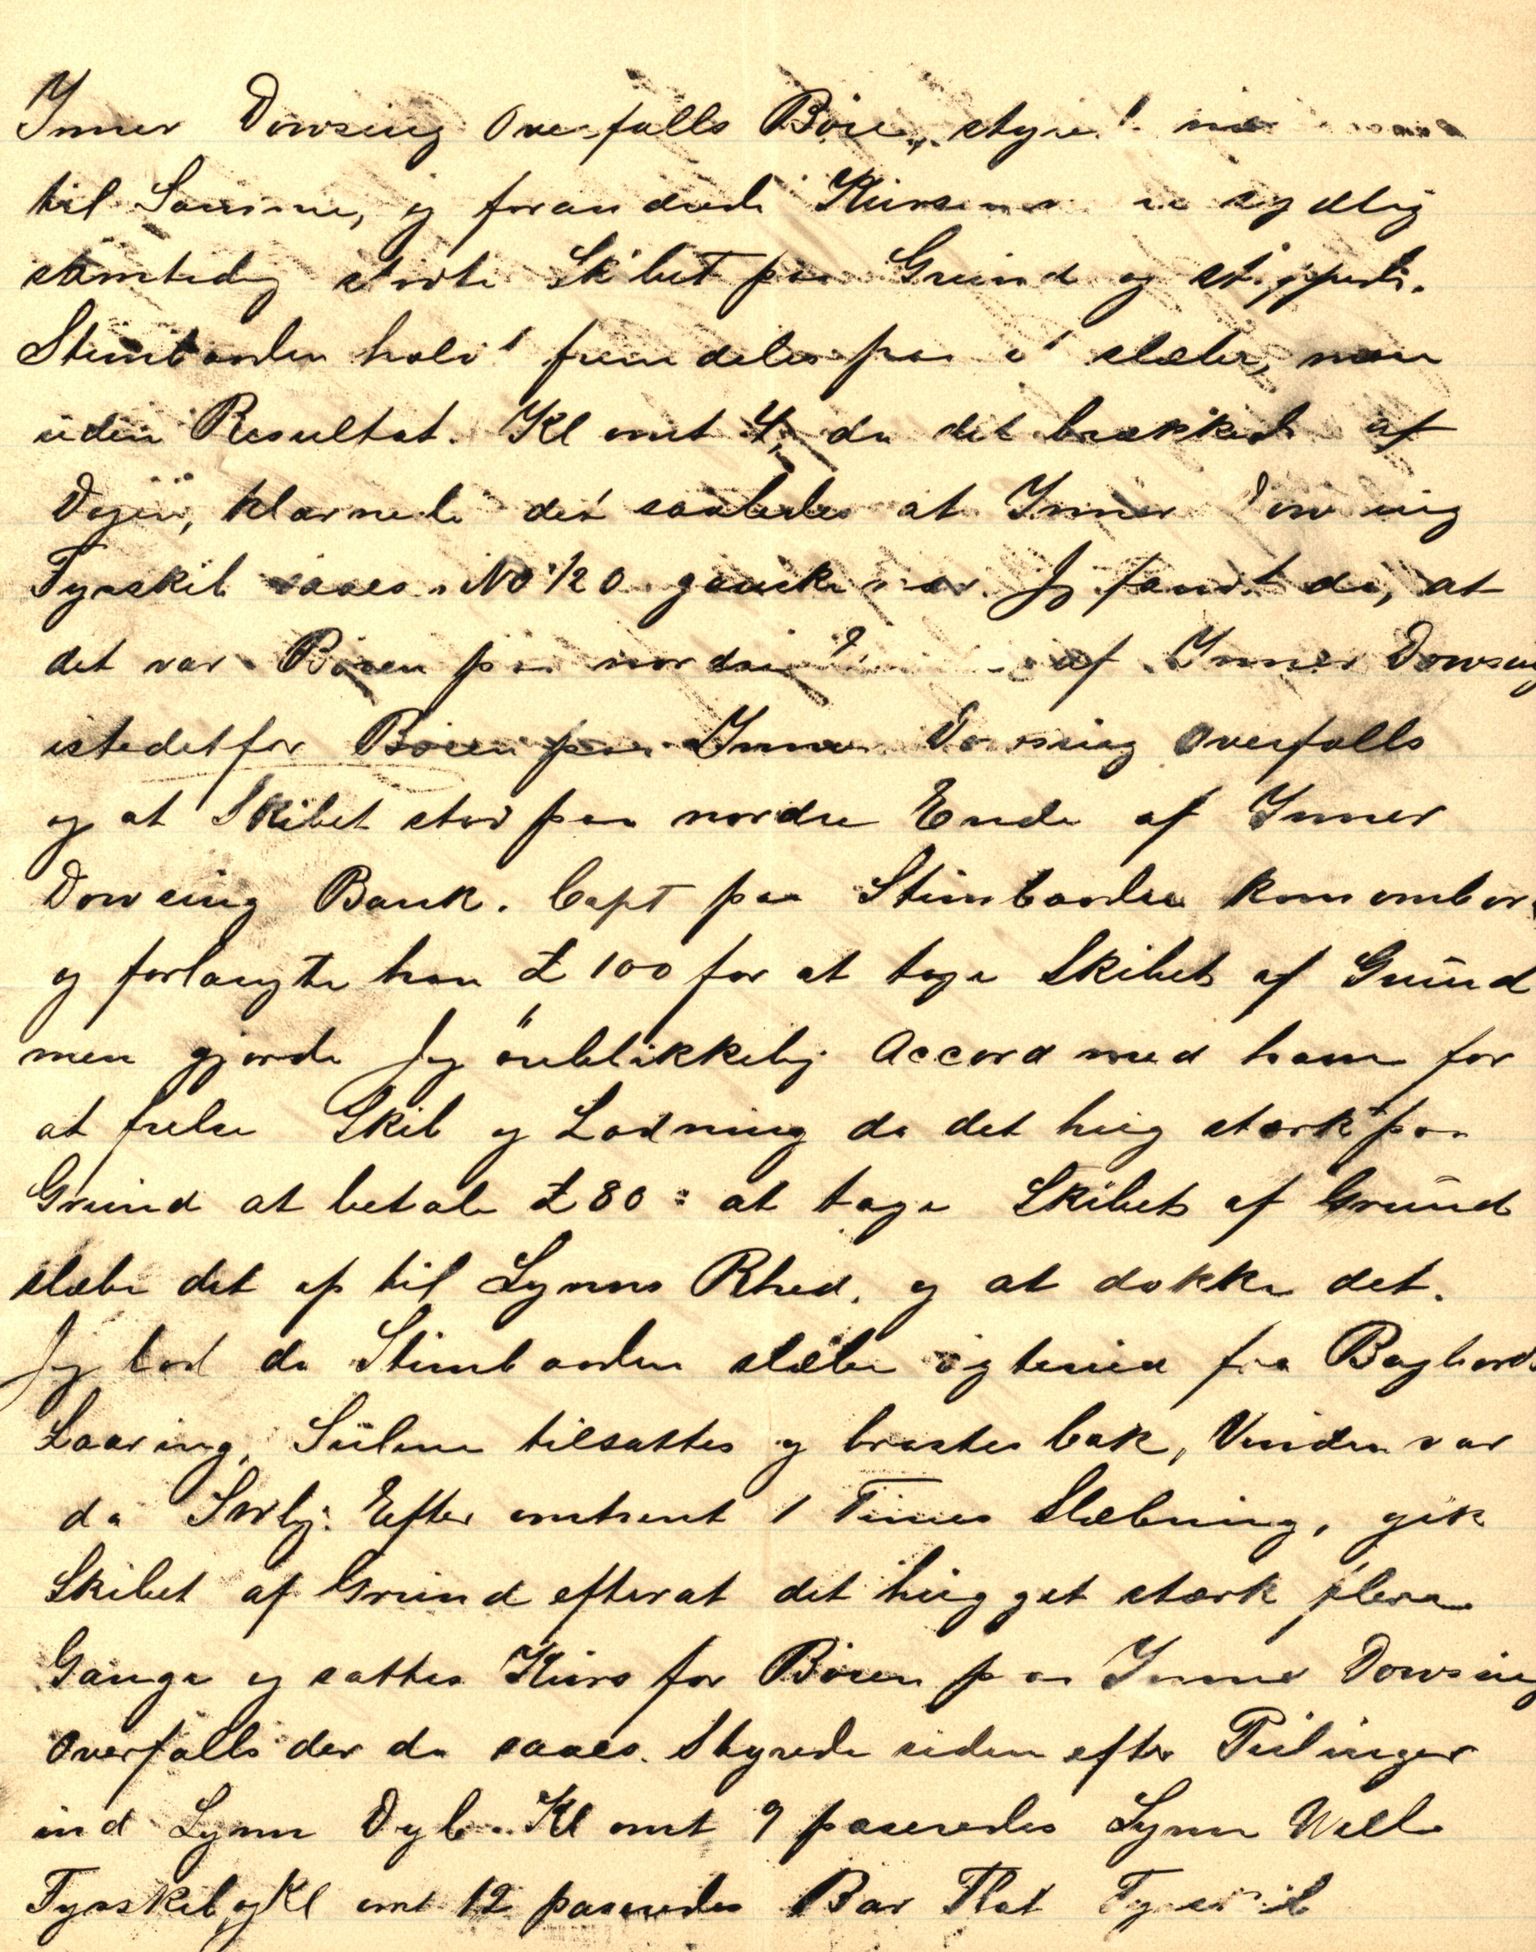 Inner Dowsing Overfalls Böie, styret nær
til Samme, og forandrede Kursen sydlig
samtidig stødte Skibet paa Grund og stoppede.
Stimbaaden holdt fremdeles paa at slæbe, men
uden Resultat. Kl omt 4, da det brækkede af
Dagen, klarnede det saaledes at Inner Dowsing
Fyrskib saaes i NO 1/2 O ganske nær. Jeg fandt da, at
det var Böien paa nordre af Inner Dowsing
istedetfor Böien paa Inner Dowsing Overfalls
og at Skibet stod paa nordre Ende af Inner
Dowsing Bank. Capt paa Stimbaaden kom ombord
og forlangte han £ 100 for at tage Skibet af Grund
men gjorde Jeg öieblikkelig Accord med ham for
at frelse Skib og Ladning da det hug stærk paa
Grund at betale £ 80: at tage Skibet af Grund
slæbe det op til Lynns Rhed, og at dokke det.
Jeg lod da Stimbaaden slæbe agterud fra Bagbords
Laaring, Seilene tilsattes og brastes bak, Vinden var
da Svlig. Efter omtrent 1 Times Slæbning, gik
Skibet af Grund efterat det hugget stærk flere
Gange og sattes Kurs for Böien paa Inner Dowsing
Overfalls der da saaes. Styrede siden efter Peilinger
ind Lynn Dyb. Kl omt 9 passeredes Lynn Well
Fyrskib, og Kl omt 12 passeredes Bar Flat Fyrskib